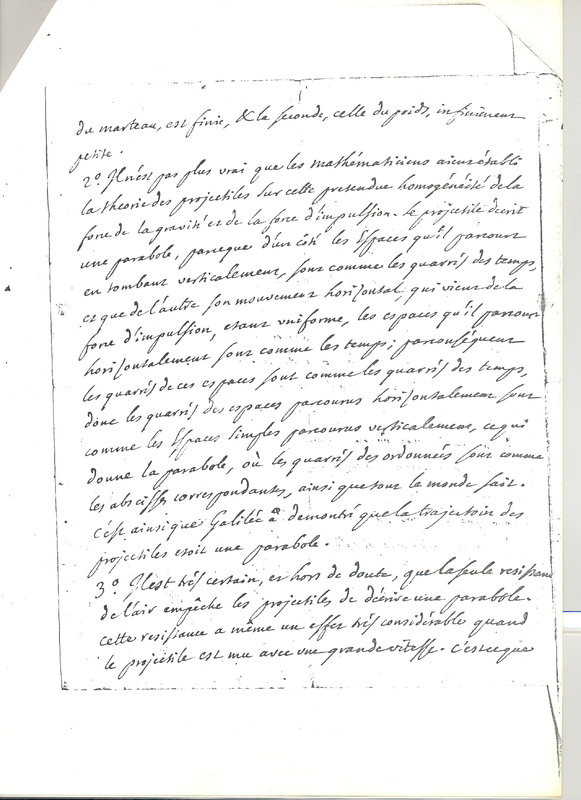 du marteau, est finie, & la seconde, celle du poids, infiniment
petite.
2.° Il n'est pas plus vrai que les mathématiciens aient établi
la theorie des projectiles sur cette pretendue homogénéité de la
force de la gravité et de la force d'impulsion. le projectile decrit
une parabole, parceque d'un côté les Espaces qu'il parcourt
en tombant verticalement, sont comme les quarrés des temps,
et que de l'autre son mouvement horisontal, qui vient de la
force d'impulsion, etant uniforme, les espaces qu'il parcourt
horisontalement sont comme les temps; par conséquent
les quarrés de ces espaces sont comme les quarrés des temps,
donc les quarrés des espaces parcourus horisontalement sont
comme les Espaces simples parcourus verticalement, ce qui
donne la parabole, où les quarrés des ordonnées sont comme
les abscisses correspondantes, ainsi que tout le monde sait.
C'est ainsi que Galilée a demontré que la trajectoire des
projectiles etoit une parabole.
3.° Il est trés certain, et hors de doute, que la seule resistance
de l'air empêche les projectiles de décrire une parabole.
cette resistance a même un effet trés considérable quand
le projectile est mu avec une grande vitesse. c'est ce que